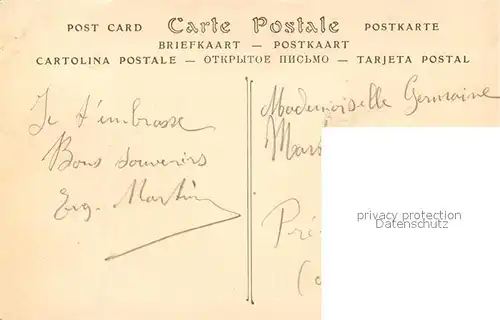 POST CARD Carte Postale POSTKARTE
BRIEFKAART — POSTKAART
CARTOLINA POSTALE — ОТКРЫТОЕ ПИСЬМО — TARJETA POSTAL
Je t'embrasse
Bons souvenirs
Eug. Martin
Mademoiselle Germaine
Mart
Pré
privacy protection
oldthing.de